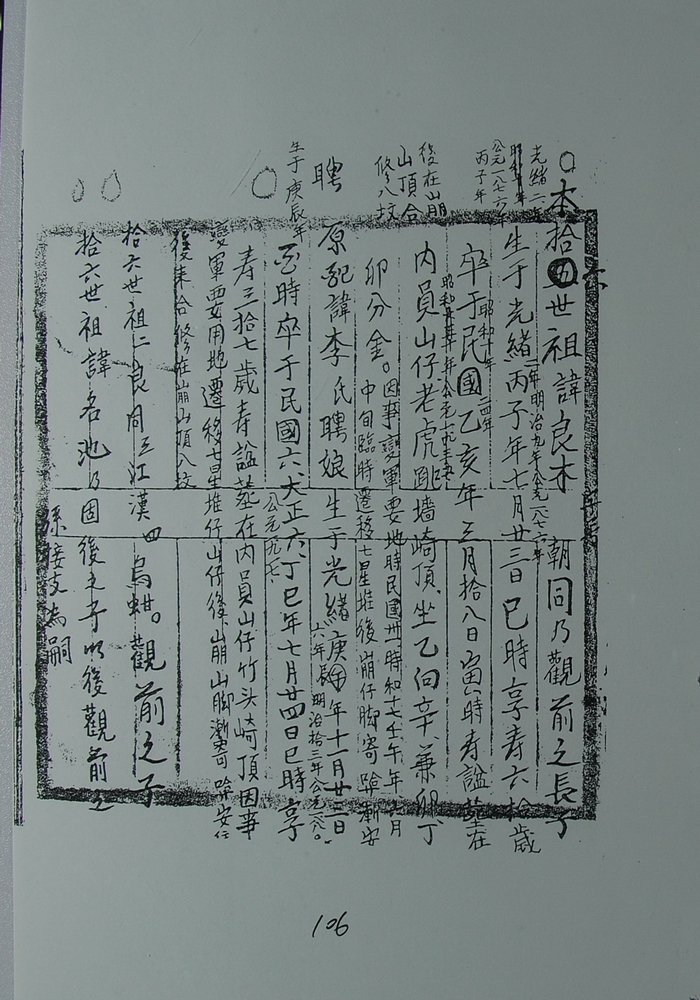 本拾五世祖諱良木 朝同乃觀前之長子
六
生于光緒丙子年七月廿三日巳時享寿六拾歲
二年明治九年公元一八七六年
光緒二年
公元一八七六年
丙子年
卒于民國乙亥年三月拾八日寅時寿謚葬在
昭和十年
內員山仔老虎跳墙崎頂坐乙向辛兼卯丁
後在崩
山頂合
修八坟
卯分金。因事變軍要地時民國卅一時和十七壬午年六月
中旬臨時遷移七星堆後崩仔脚寄
原配諱李氏聘娘生于光緒庚年十一月廿三日
六年 明治拾三年公元一八八〇
聘
生于庚辰年
至時卒于民國六大正六丁巳年七月廿四日巳時享
寿三拾七歲寿謚葬在內員山仔竹头崎頂因事
變軍要用地遷移七星堆仔山仔後崩山脚漸寄
後來合修在崩山頂八坟
拾六世祖二良同三江漢四烏蚶。觀前之子
拾六世祖諱名池乃固後之子以後觀前之
孫接支為嗣
106